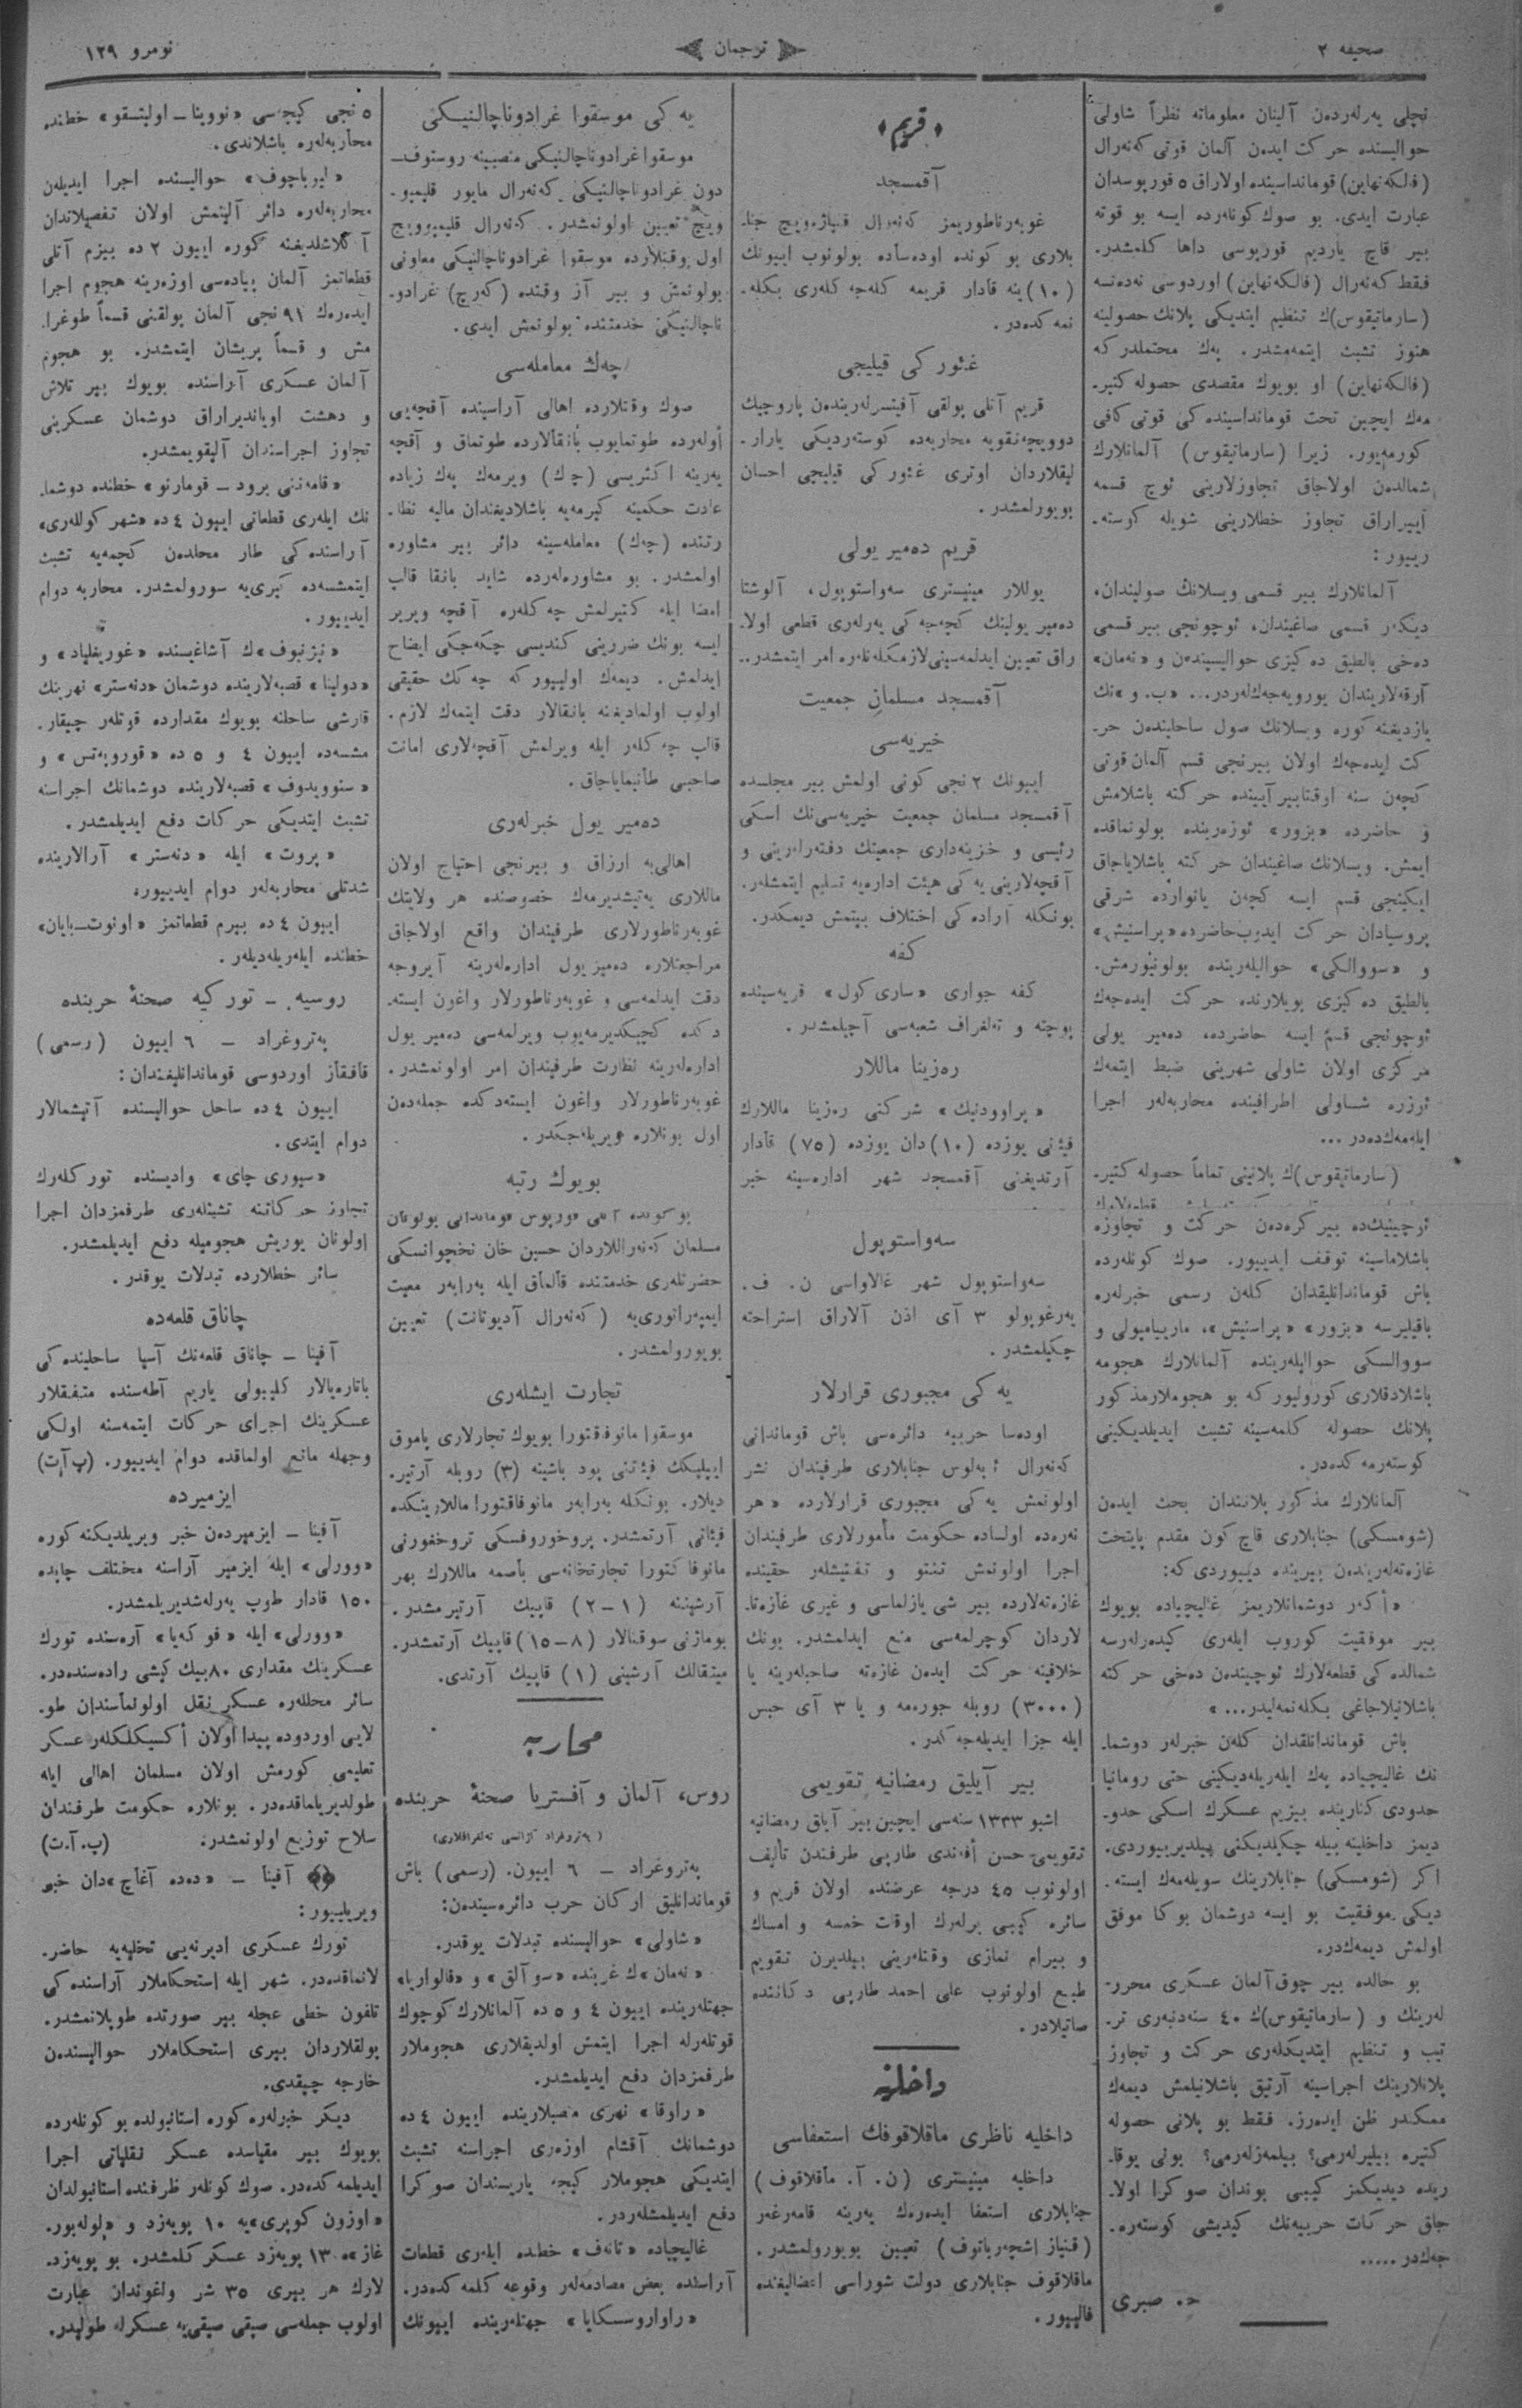 صحیفه ٢
ترجمان
نومرو ١٢٩
نچلی یه‌رله‌رده‌ن آلینان معلوماته نظراً شاولی
حوالیسنده حرکت ایده‌ن آلمان قوتی که‌نه‌رال
(فالکه‌نهاین) قومانداسینده اولاراق ٥ قورپوسدان
عبارت ایدی. بو صوك کونله‌رده ایسه بو قوته
بیر قاچ یاردیم قورپوسی داها کلمشدر.
فقط که‌نه‌رال (فالکه‌نهاین) اوردوسی نه‌ده‌نسه
(سارماتیقوس)ك تنظیم ایتدیکی پلانك حصولینه
هنوز تشبث ایتمه‌مشدر. په‌ك محتملدر که
(فالکه‌نهاین) او بویوك مقصدی حصوله کتیر-
مه‌ك ایچین تحت قومانداسینده کی قوتی کافی
کورمه‌یور. زیرا (سارماتیقوس) آلمانلارك
شمالده‌ن اولاجاق تجاوزلارینی ئوچ قسمه
آییراراق تجاوز خطلارینی شویله کوسته-
رییور:
آلمانلارك بیر قسمی ویسلانك صولیندان،
دیکه‌ر قسمی صاغیندان، ئوچونجی بیر قسمی
ده‌خی بالطیق ده‌کیزی حوالیسینده‌ن و «نه‌مان»
آرقه‌لاریندان یورویه‌جه‌ك‌له‌ردر... «ب. و»نك
یازدیغنه کوره ویسلانك صول ساحلینده‌ن حر-
کت ایده‌جه‌ك اولان بیرنجی قسم آلمان قوتی
کچه‌ن سنه اوقتابیر آیینده حرکته باشلامش
و حاضرده «بزور» ئوزه‌رینده بولونماقده
ایمش. ویسلانك صاغیندان حرکته باشلایاجاق
ایکینجی قسم ایسه کچه‌ن یانوارده شرقی
پروسیادان حرکت ایدوب حاضرده «پراسنیش»
و «سووالکی» حوالیله‌رینده بولونیورمش.
بالطیق ده‌کیزی بویلارنده حرکت ایده‌جه‌ك
ئوچونجی قسم ایسه حاضرده، ده‌میر یولی
مرکزی اولان شاولی شهرینی ضبط ایتمه‌ك
ئوزره شاولی اطرافینده محاربه‌له‌ر اجرا
ایله‌مه‌ك‌ده‌در ...
(سارماتیقوس)ك پلانینی تماماً حصوله کتیر-
ئوچیینك‌ده بیر کره‌ده‌ن حرکت و تجاوزه
باشلاماسینه توقف ایدییور. صوك کونله‌رده
باش قوماندانلیقدان کله‌ن رسمی خبرله‌ره
باقیلیرسه «بزور» «پراسنیش»، مارییامپولی و
سووالسکی حوالیله‌رینده آلمانلارك هجومه
باشلادقلاری کورولیور که بو هجوملار مذکور
پلانك حصوله کلمه‌سینه تشبث ایدیلدیکینی
کوسته‌رمه کده‌در.
آلمانلارك مذکور پلانندان بحث ایده‌ن
(شومسکی) جنابلاری قاچ کون مقدم پایتخت
غازه‌ته‌له‌رینده‌ن بیرینده دییوردی که:
«أکه‌ر دوشمانلاریمز غالیچیاده بویوك
بیر موفقیت کوروب ایله‌ری کیده‌رله‌رسه
شمالده کی قطعه‌لارك ئوچینده‌ن ده‌خی حرکته
باشلانیلاجاغی بکله‌نمه‌لیدر... »
باش قوماندانلقدان کله‌ن خبرله‌ر دوشما-
نك غالیچیاده په‌ك ایله‌ریله‌دیکینی حتی رومانیا
حدودی کنارینده بیزیم عسکرك اسکی حدو-
دیمز داخلینه بیله چکیلدیکنی بیلدیرییوردی.
اکر (شومسکی) جنابلارینك سویله‌مه‌ك ایسته-
دیکی موفقیت بو ایسه دوشمان بو کا موفق
اولمش دیمه‌کدر.
بو حالده بیر چوق آلمان عسکری محرر-
له‌رینك و (سارماتیقوس)ك ٤٠ سنه‌دنبه‌ری تر-
تیب و تنظیم ایتدیکله‌ری حرکت و تجاوز
پلانلارینك اجراسینه آرتیق باشلانیلمش دیمه‌ك
ممکندر ظن ایده‌رز. فقط بو پلانی حصوله
کتیره بیلیرله‌رمی؟ بیلمه‌زله‌رمی؟ بونی یوقا-
ریده دیدیکمز کیبی بوندان صوکرا اولا-
جاق حرکات حربیه‌نك کیدیشی کوسته‌ره-
جه‌ك‌در .....
ح. صبری
﴿قریم﴾
آقمسجد
غوبه‌رناطوریمز که‌نه‌رال قنیاژه‌ویچ جنا-
بلاری بو کونده اوده‌سأده بولونوب ایيونك
(١٠)ینه قادار قریمه کله‌جه کله‌ری بکله-
نمه کده‌در.
غئورکی قیلیجی
قریم آتلی پولقی آفیتسرله‌رینده‌ن پاروچیك
دوویچه‌نقویه محاربه‌ده کوسته‌ردیکی یارار-
لیقلاردان اوتری غئورکی قیلیجی احسان
بویورلمشدر.
قریم ده‌میر یولی
یوللار مینیستری سه‌واستوپول، آلوشتا
ده‌میر یولینك کچه‌جه کی یه‌رله‌ری قطعی اولا-
راق تعیین ایدلمه‌سینی لازمکله‌نله‌ره امر ایتمشدر..
آقمسجد مسلمان جمعیت
خیریه‌سی
ایيونك ٢ نجی کونی اولمش بیر مجلسده
آقمسجد مسلمان جمعیت خیریه‌سی‌نك اسکی
رئیسی و خزینه‌داری جمعیتك دفته‌رله‌رینی و
آقچه‌لارینی یه کی هیئت اداره‌یه تسلیم ایتمشله‌ر.
بونکله آراده کی اختلاف بیتمش دیمکدر.
کفه
کفه جواری «ساری کول» قریه‌سینده
پوچته و ته‌لغراف شعبه‌سی آچیلمشدر.
ره‌زینا ماللار
«پراوودنیك» شرکتی ره‌زینا ماللارك
فیئنی یوزده (١٠)دان یوزده (٧٥) قادار
آرتدیغنی آقمسجد شهر اداره‌سینه خبر
سه‌واستوپول
سه‌واستوپول شهر غالاواسی ن. ف.
یه‌رغوپولو ٣ آی اذن آلاراق استراحته
چکیلمشدر.
یه کی مجبوری قرارلار
اوده‌سا حربیه دائره‌سی باش قوماندانی
که‌نه‌رال ئبه‌لوس جنابلاری طرفیندان نشر
اولونمش یه کی مجبوری قرارلارده «هر
نه‌ره‌ده اولساده حکومت مأمورلاری طرفیندان
اجرا اولونمش تنتو و تفتیشله‌ر حقینده
غازه‌ته‌لارده بیر شی یازلماسی و غیری غازه‌تا-
لاردان کوچرلمه‌سی منع ایدلمشدر. بونك
خلافینه حرکت ایده‌ن غازه‌ته صاحبله‌رینه یا
(٣٠٠٠) روبله جوره‌مه و یا ٣ آی حبس
ایله جزا ایدیله‌جه کدر.
بیر آیلیق رمضانیه تقویمی
اشبو ١٣٣٣ سنه‌سی ایچین بیر آیلق رمضانیه
تقویمی حسن أفه‌ندی طارپی طرفندن تألیف
اولونوب ٤٥ درجه عرضنده اولان قریم و
سائره کیبی یرله‌رك اوقات خمسه و امساك
و بیرام نمازی وقتله‌رینی بیلدیرن تقویم
طبع اولونوب علی احمد طارپی دکاننده
صاتیلادر.
داخلیه
داخلیه ناظری ماقلاقوفك استعفاسی
داخلیه مینیستری (ن. آ. مأقلاقوف)
جنابلاری استعفا ایده‌ره‌ك یه‌رینه قامه‌رغه‌ر
(قنیاز اشچه‌رباتوف) تعیین بویورولمشدر.
ماقلاقوف جنابلاری دولت شوراسی اعضالیغنده
قالییور.
یه کی موسقوا غرادوناچالنیکی
موسقوا غرادوناچالنیکی منصبینه روستوف-
دون غرادوناچالنیکی که‌نه‌رال مایور قلیمو-
ویچ تعیین اولونمشدر. که‌نه‌رال قلیموویچ
اول وقتلارده موسقوا غرادوناچالنیکی معاونی
بولونمش و بیر آز وقتده (که‌رچ) غرادو-
ناچالنیکی خدمتنده بولونمش ایدی.
چه‌ك معامله‌سی
صوك وقتلارده اهالی آراسینده آقچه‌یی
أوله‌رده طوتمایوب بأنقالارده طوتماق و آقچه
یه‌رینه اکثریسی (چك) ویرمه‌ك په‌ك زیاده
عادت حکمینه کیرمه‌یه باشلادیغندان مالیه نظا-
رتنده (چه‌ك) معامله‌سینه دائر بیر مشاوره
اولمشدر. بو مشاوره‌له‌رده شاید بانقا قالپ
امضا ایله کتیرلمش چه کله‌ره آقچه ویریر
ایسه بونك ضررینی کندیسی چکه‌جکی ایضاح
ایدلمش. دیمه‌ك اولییور که چه کك حقیقی
اولوب اولمادیغنه بانقالار دقت ایتمه‌ك لازم.
قالپ چه کله‌ر ایله ویرلمش آقچه‌لاری امانت
صاحبی طانیمایاجاق.
ده‌میر یول خبرله‌ری
اهالی‌یه ارزاق و بیرنجی احتیاج اولان
ماللاری یه‌تیشدیرمه‌ك خصوصنده هر ولایتك
غوبه‌رناطورلاری طرفیندان واقع اولاجاق
مراجعتلاره ده‌میر یول اداره‌له‌رینه آیروجه
دقت ایدلمه‌سی و غوبه‌رناطورلار واغون ایسته-
دکده کچیکدیرمه‌یوب ویرلمه‌سی ده‌میر یول
اداره‌له‌رینه نظارت طرفیندان امر اولونمشدر.
غوبه‌رناطورلار واغون ایسته‌دکده جمله‌ده‌ن
اول بونلاره ویریله‌جکدر.
بویوك رتبه
بو کونده آتلی قورپوس قوماندانی بولونان
مسلمان که‌نه‌راللاردان حسین خان نخچوانسکی
حضرتله‌ری خدمتنده قالماق ایله به‌رابه‌ر معیت
ایمپه‌راتوری‌یه (که‌نه‌رال آدیوتانت) تعیین
بویورولمشدر.
تجارت ایشله‌ری
موسقوا مانوفاقتورا بویوك تجارلاری پاموق
ایپلیکك فیئتنی پود باشینه (٣) روبله آرتیر-
دیلار. بونکله به‌رابه‌ر مانوفاقتورا ماللارینكده
فیئاتی آرتمشدر. پروخوروفسکی تروخغورنی
مانوفاکتورا تجارتخانه‌سی بأصمه ماللارك بهر
آرشیننه (١-٢) قاپیك آرتیرمشدر.
بوماژنی سوقنالار (٨-١٥) قاپیك آرتمشدر.
میتقالك آرشینی (١) قاپیك آرتدی.
محاربه
روس، آلمان و آفستریا صحنهٔ حربنده
(په‌تروغراد آژانسی ته‌لغرافلاری)
په‌تروغراد - ٦ ایيون. (رسمی) باش
قوماندانلیق ارکان حرب دائره‌سینده‌ن:
«شاولی» حوالیسنده تبدلات یوقدر.
«نه‌مان»ك غربنده «سوآلق» و «قالواریا»
جهتله‌رینده ایيون ٤ و ٥ ده آلمانلارك کوچوك
قوتله‌رله اجرا ایتمش اولدیقلاری هجوملار
طرفمزدان دفع ایدیلمشدر.
«راوقا» نهری منصبلارینده ایيون ٤ ده
دوشمانك آقشام اوزه‌ری اجراسنه تشبث
ایتدیکی هجوملار کیجه یاریسندان صوکرا
دفع ایدیلمشله‌ردر.
غالیچیاده «تانه‌ف» خطنده ایله‌ری قطعات
آراسنده بعض مصادمه‌له‌ر وقوعه کلمه کده‌در.
«راواروسسکایا» جهتله‌رینده ایيونك
٥ نجی کیجه‌سی «نووینا - اولیتسقو» خطنده
محاربه‌له‌ره باشلاندی.
«لیرباچوف» حوالیسنده اجرا ایدیله‌ن
محاربه‌له‌ره دائر آلینمش اولان تفصیلاتدان
آکلاشلدیغنه کوره ایيون ٢ ده بیزم آتلی
قطعاتمز آلمان پیاده‌سی اوزه‌رینه هجوم اجرا
ایده‌ره‌ك ٩١ نجی آلمان پولقنی قسماً طوغرا-
مش و قسماً پریشان ایتمشدر. بو هجوم
آلمان عسکری آراسنده بویوك بیر تلاش
و دهشت اویاندیراراق دوشمان عسکرینی
تجاوز اجراسندان آلیقویمشدر.
«قامه‌ننی برود - قومارنو» خطنده دوشما-
نك ایله‌ری قطعاتی ایيون ٤ ده «شهر کولله‌ری»
آراسنده کی طار محلدن کچمه‌یه تشبث
ایتمشسه‌ده کیری‌یه سورولمشدر. محاربه دوام
ایدییور.
«نیژنیوف»ك آشاغیسنده «غوریغلیاد» و
«دولینا» قصبه‌لارینده دوشمان «دنه‌ستر» نهرینك
قارشی ساحلنه بویوك مقدارده قوتله‌ر چیقار-
مشسه‌ده ایيون ٤ و ٥ ده «قوروپه‌تس» و
«سنوویدوف» قصبه‌لارینده دوشمانك اجراسنه
تشبث ایتدیکی حرکات دفع ایدیلمشدر.
«پروت» ایله «دنه‌ستر» آرالارینده
شدتلی محاربه‌له‌ر دوام ایدییور.
ایيون ٤ ده بیزم قطعاتمز «اونوت-بایان»
خطنده ایله‌ریله‌دیله‌ر.
روسیه - تورکیه صحنهٔ حربنده
په‌تروغراد - ٦ ایيون (رسمی)
قافقاز اوردوسی قوماندانلیغندان:
ایيون ٤ ده ساحل حوالیسنده آتیشمالار
دوام ایتدی.
«سیوری چای» وادیسنده تورکله‌رك
تجاوز حرکاتنه تشبثله‌ری طرفمزدان اجرا
اولونان یوریش هجومیله دفع ایدیلمشدر.
سائر خطلارده تبدلات یوقدر.
چاناق قلعه‌ده
آفینا - چاناق قلعه‌نك آسیا ساحلینده کی
باتاره‌یالار کلیبولی یاریم آطه‌سنده متفقلار
عسکرینك اجرای حرکات ایتمه‌سنه اولکی
وجهله مانع اولماقده دوام ایدییور. (پ‌آت)
ایزمیرده
آفینا - ایزمیرده‌ن خبر ویریلدیکنه کوره
«وورلی» ایله ایزمیر آراسنه مختلف چاپده
١٥٠ قادار طوپ یه‌رله‌شدیریلمشدر.
«وورلی» ایله «فوکه‌یا» آره‌سنده تورك
عسکرینك مقداری ٨٠ بیك کیشی راده‌سنده‌در.
سائر محلله‌ره عسکر نقل اولونماسندان طو-
لایی اوردوده پیدا اولان أکسیکلکله‌ر عسکر
تعلیمی کورمش اولان مسلمان اهالی ایله
طولدیریلماقده‌در. بونلاره حکومت طرفندان
سلاح توزیع اولونمشدر. (پ.آ.ت)
آفینا - «ده‌ده آغاچ»دان خبر
ویریلییور:
تورك عسکری ادیرنه‌یی تخلیه‌یه حاضر-
لانماقده‌در. شهر ایله استحکاملار آراسنده کی
تلفون خطی عجله بیر صورتده طوپلانمشدر.
پولقلاردان بیری استحکاملار حوالیسنده‌ن
خارجه چیقدی.
دیکر خبرله‌ره کوره استانبولده بو کونله‌رده
بویوك بیر مقیاسده عسکر نقلیاتی اجرا
ایدیلمه کده‌در. صوك کونله‌ر ظرفنده استانبولدان
«اوزون کوپری»یه ١٠ پویه‌زد و «لوله‌بور-
غاز»ه ١٣٠ پویه‌زد عسکر کلمشدر. بو پویه‌زد-
لارك هر بیری ٣٥ شر واغوندان عبارت
اولوب جمله‌سی صیقی صیقی‌یه عسکرله طولیدر.